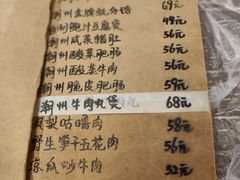 潮州 69元
潮州鲍汁豆腐煲 49元
潮州咸菜猪肚 56元
潮州酸菜肥肠 56元
潮州酸菜牛肉 56元
潮州脆皮肥肠 59元
潮州牛肉丸煲 68元
凤梨咕噜肉 58元
野生笋子五花肉 56元
京瓜炒牛肉 52元